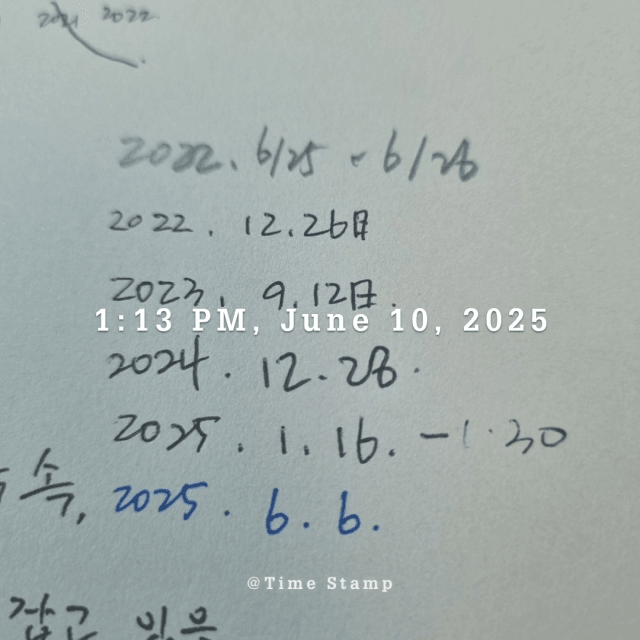 2021 2022
2022. 6/25 - 6/28
2022. 12.26日
2023. 9.12日.
1:13 PM, June 10, 2025
2024. 12.28.
2025. 1. 16. - 1.30
속, 2025. 6. 6.
@Time Stamp